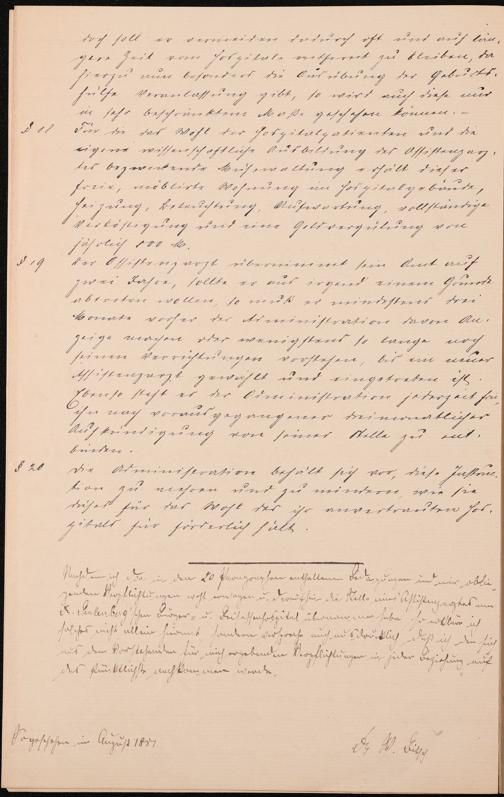 doch soll er vermeiden dadurch oft und auf län-
gere Zeit vom Hospitale entfernt zu bleiben, da
hierzu nun besonders die Ausübung der Geburts-
hülfe Veranlassung gibt, so wird auch diese nur
in sehr beschränktem Maße geschehen können. -
§ 18 Für die das Wohl der Hospitalpatienten und die
eigene wissenschaftliche Ausbildung des Assistenzarz-
tes bezweckende Mühewaltung erhält dieser
freie, möblirte Wohnung im Hospitalgebäude,
Heizung, Beleuchtung, Aufwartung, vollständige
Verköstigung und eine Geldvergütung von
jährlich 800 M.
§ 19 Der Assistenzarzt übernimmt sein Amt auf
zwei Jahre, sollte er aus irgend einem Grunde
abtreten wollen, so muß er mindestens drei
Monate vorher der Administration davon An-
zeige machen oder wenigstens so lange noch
seinen Verrichtungen vorstehen, bis ein neuer
Assistenzarzt gewählt und eingetreten ist.
Ebenso steht es der Administration jederzeit frei
ihn nach vorausgegangener dreimonatlicher
Aufkündigung von seiner Stelle zu ent-
binden.
§ 20 Die Administration behält sich vor, diese Instruc-
tion zu mehren und zu mindern, wie sie
dieses für das Wohl des ihr anvertrauten Hos-
pitals für förderlich hält.
Nachdem ich die in den 20 Paragraphen enthaltenen Bedingungen und mir oblie-
genden Verpflichtungen wohl erwogen u. daraufhin die Stelle eines Assistenzarztes am
Dr. Senkenberg'schen Bürger- u. Beisassenhospital übernommen habe, so erkläre ich
solches nicht allein hiermit, sondern verspreche auch ausdrücklich, daß ich den sich
aus dem Vorstehenden für mich ergebenden Verpflichtungen in jeder Beziehung auf
das Pünktlichste nachkommen werde.
So geschehen im August 1881
Dr. W.